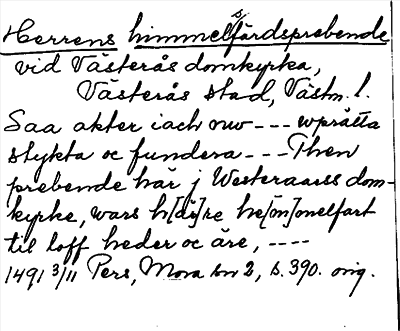 Herrens himmelsfärdsprebende
vid Västerås domkyrka,
Västerås stad, Västm. l.
Saa akter iach nw --- wprätta
stykta oc fundera --- Then
prebende här j Westeraarss dom-
kyrke, wars h[är]re he[m]melfart
til loff heder oc äre, ----
1491 3/11 Pers, Mora bn 2, s. 390. orig.